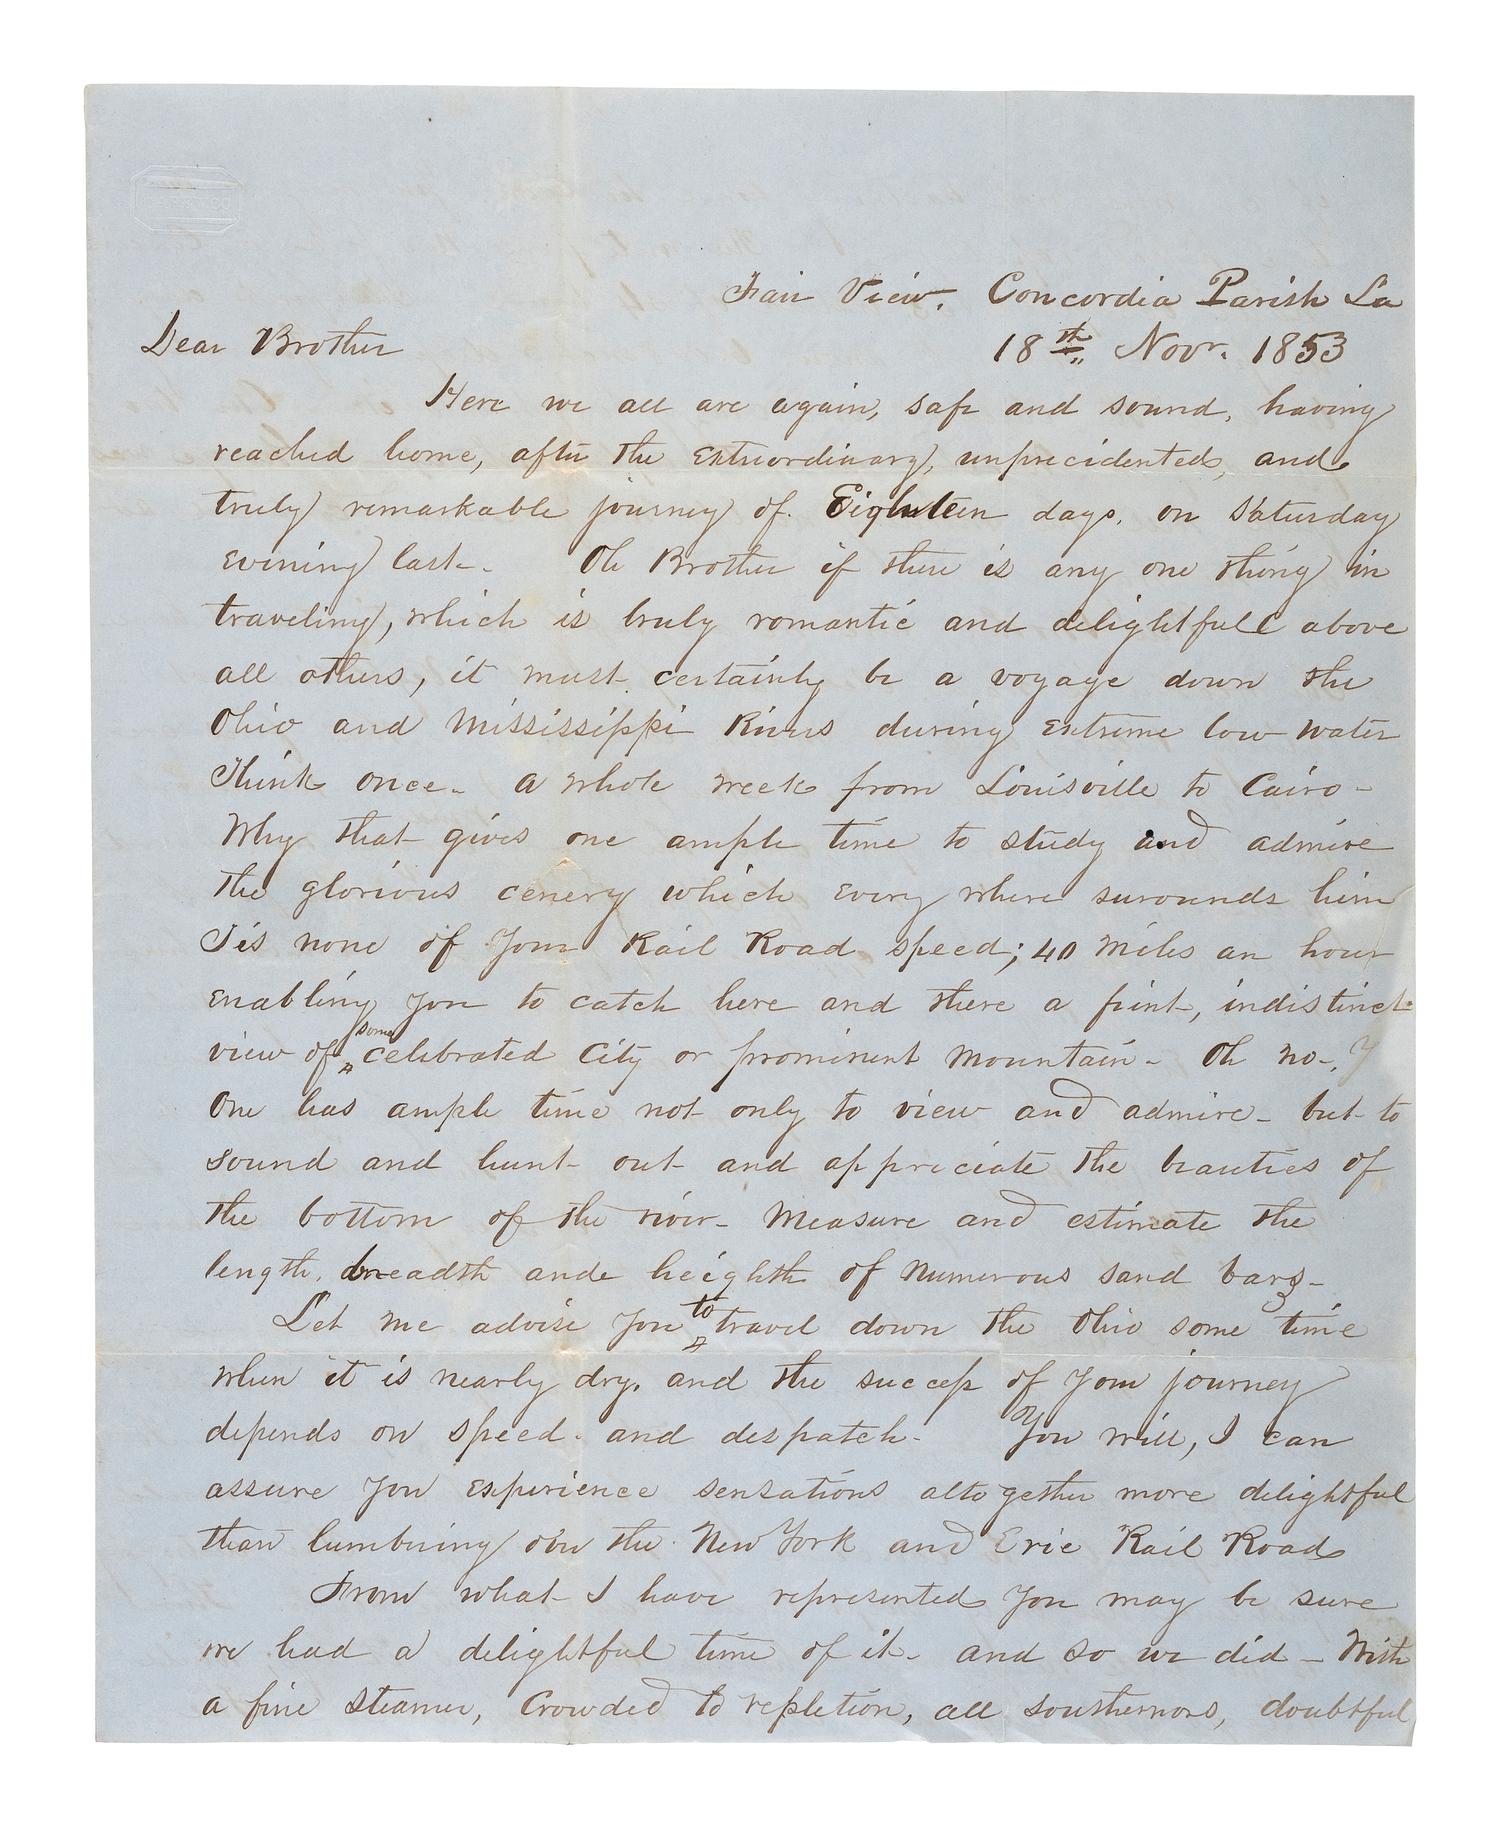 Fair View. Concordia Parish La
18th Novr. 1853
Dear Brother
Here we all are again, safe and sound, having
reached home, after the extraordinary, unprecidented, and
truly remarkable journey of Eighteen days, on Saturday
evening last. Oh Brother if there is any one thing in
traveling, which is truly romantic and delightfull above
all others, it must certainly be a voyage down the
Ohio and Mississippi Rivers during extreme low water
Think once - a whole week from Louisville to Cairo -
Why that gives one ample time to study and admire
the glorious cenery which every where surounds him
Tis none of your Rail Road speed; 40 miles an hour
enabling you to catch here and there a faint, indistinct
view of some celebrated City or prominent mountain - Oh no -
One has ample time not only to view and admire - but to
sound and hunt out and appreciate the beauties of
the bottom of the river - Measure and estimate the
length, breadth ande heighth of numerous sand bars -
Let me advise you to travel down the Ohio some time
when it is nearly dry, and the success of your journey
depends on speed. and despatch - You will, I can
assure you experience sensations altogether more delightful
than lumbering over the New York and Erie Rail Road
From what I have represented you may be sure
we had a delightful time of it - and so we did - With
a fine steamer, Crowded to repletion, all southernors, doubtful